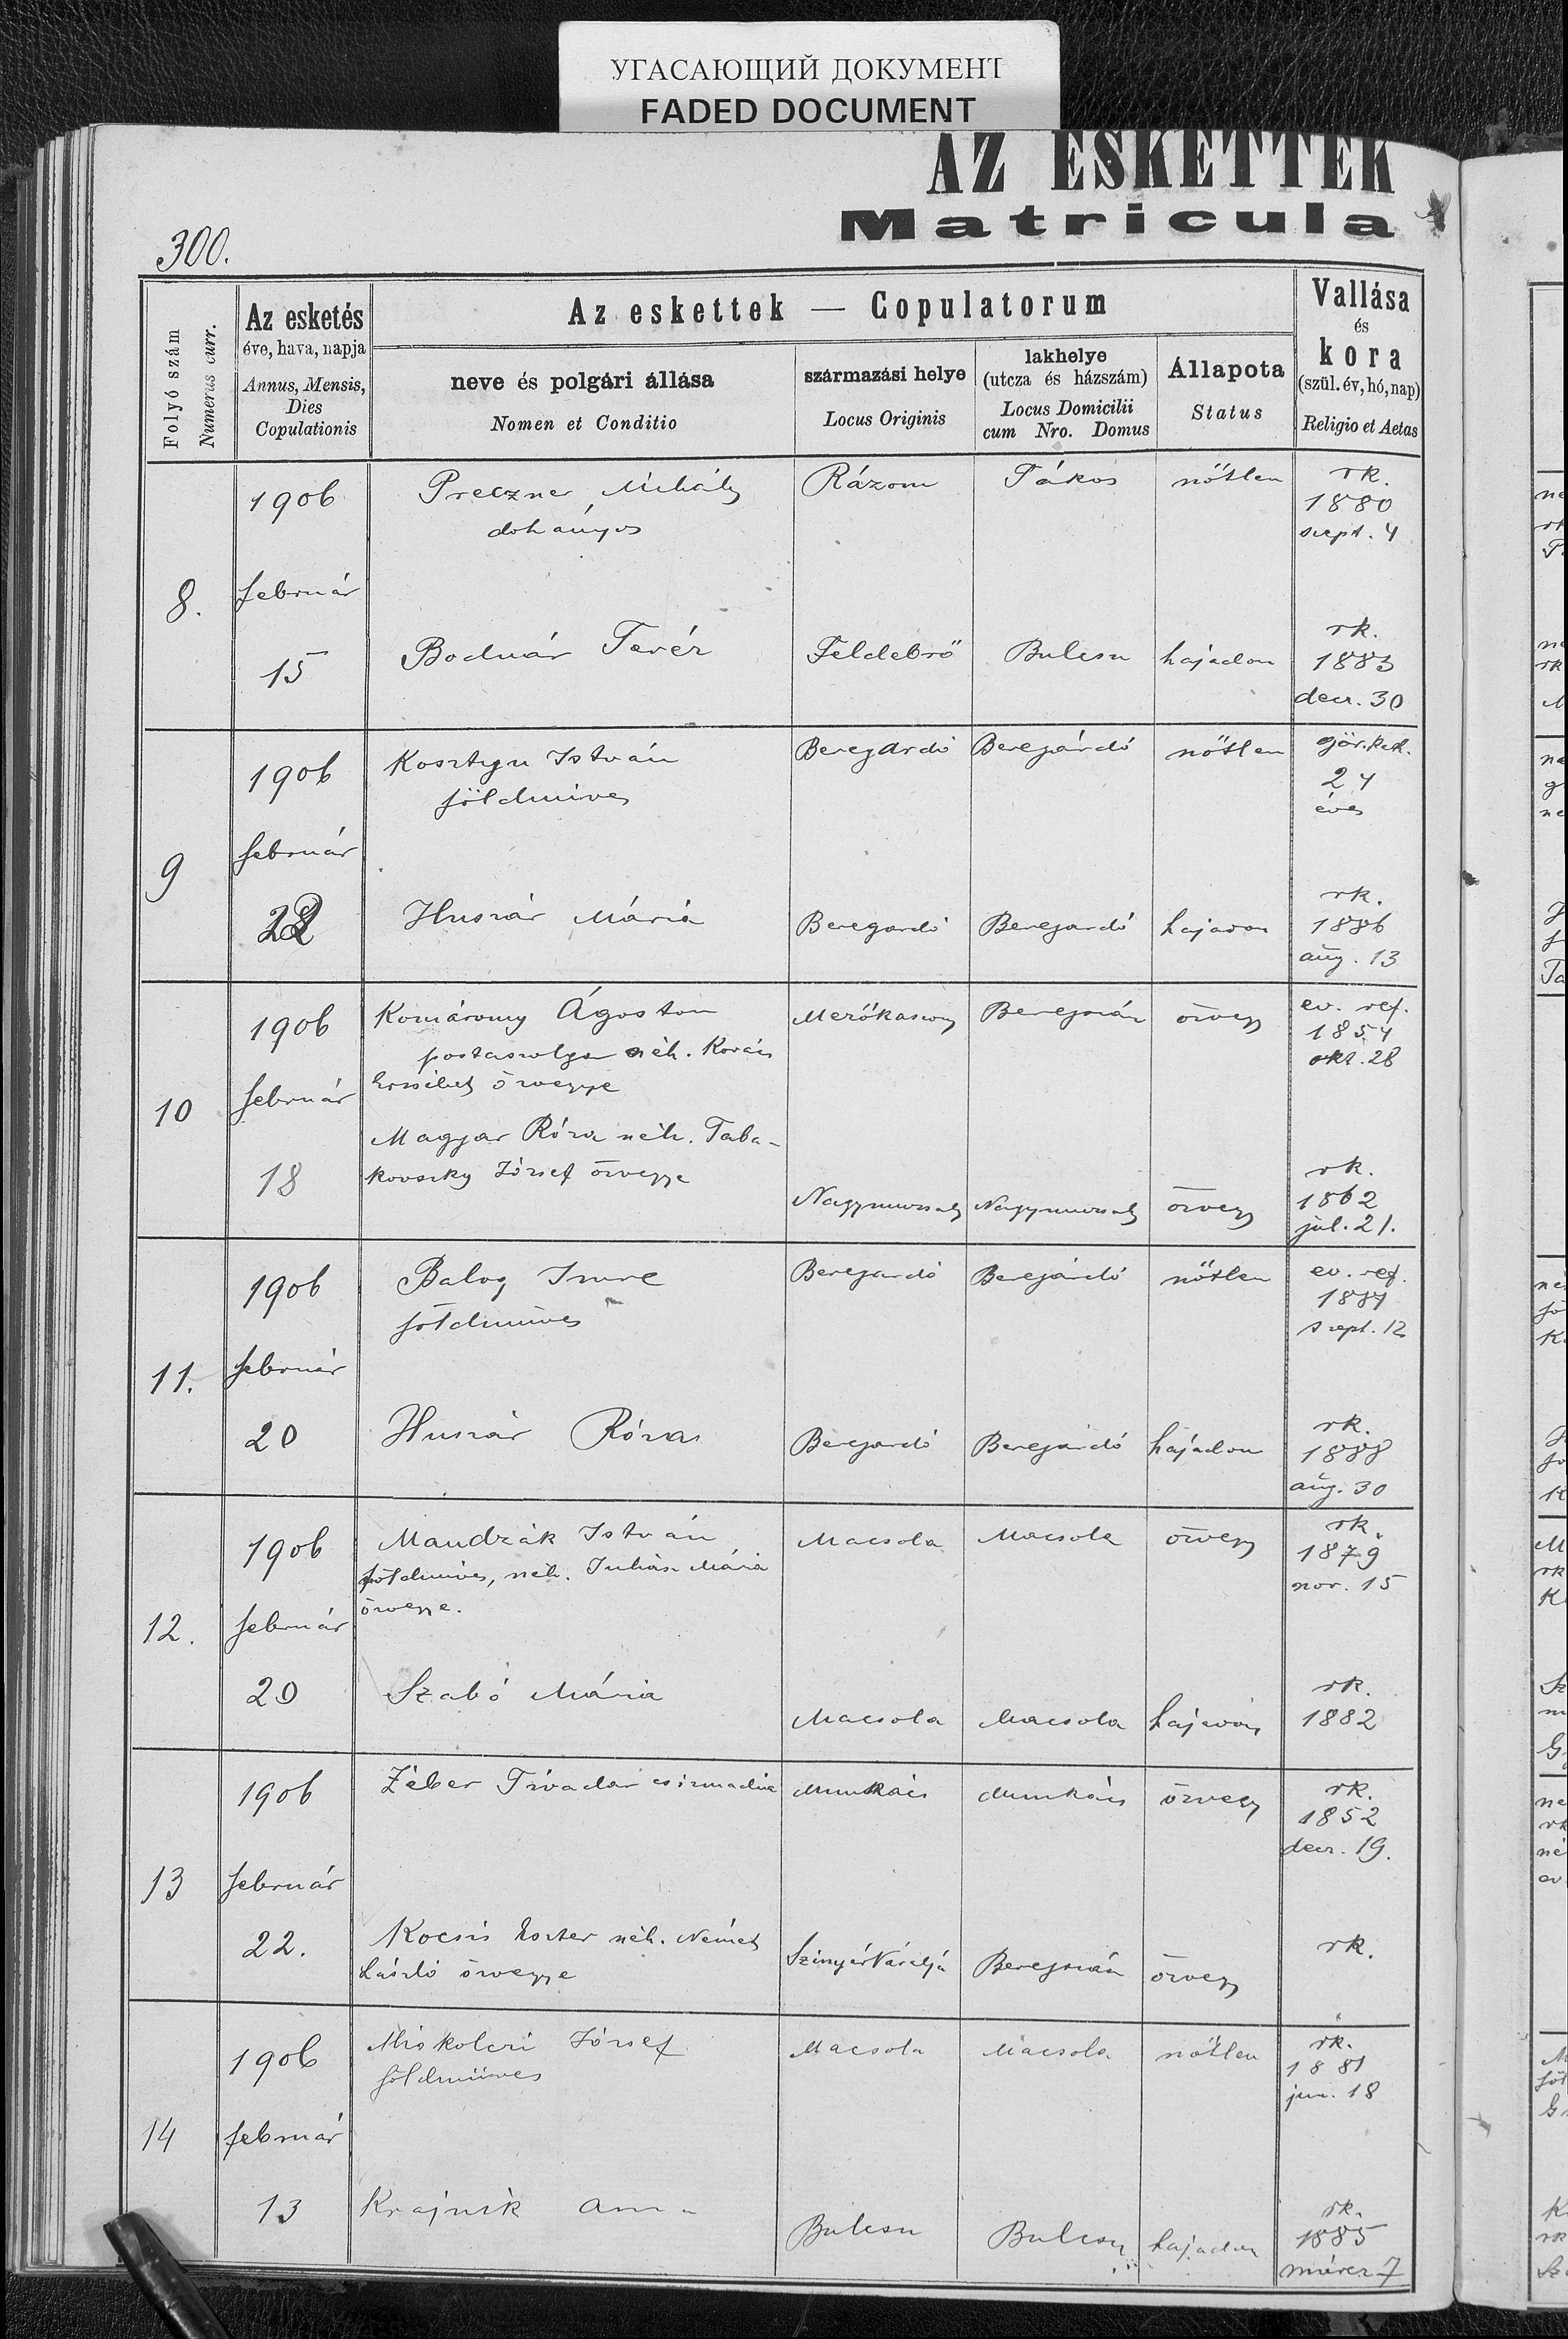 УГАСАЮЩИЙ ДОКУМЕНТ
FADED DOCUMENT
AZ ESKETTEK
Matricula
300.
Folyó szám
Numerus curr.
Az esketés
éve, hava, napja
Annus, Mensis,
Dies
Copulationis
Az eskettek — Copulatorum
neve és polgári állása
Nomen et Conditio
származási helye
Locus Originis
lakhelye
(utcza és házszám)
Locus Domicilii
cum Nro. Domus
Állapota
Status
Vallása
és
kora
(szül. év, hó, nap)
Religio et Aetas
8.
1906
február
15
Preczner Mihály
dohányos
Rázom
Tákos
nőtlen
rk.
1880
szept. 4
Bodnár Teréz
Feldebrő
Bulcsu
hajadon
rk.
1883
decz. 30
9
1906
február
Kosztyu István
földmíves
Beregardó
Beregárdó
nőtlen
gör. kath.
24
éves
Huszár Mária
Beregardó
Beregardó
hajadon
rk.
1886
aug. 13
10
1906
február
18
Komáromy Ágoston
postaszolga néh. Kovács
Erzsébet özvegye
Mezőkaszony
Beregszász
özvegy
ev. ref.
1854
okt. 28
Magyar Róza néh. Taba-
kovszky József özvegye
Nagymuzsaly
Nagymuzsaly
özvegy
rk.
1862
jul. 21.
11.
1906
február
20
Balog Imre
földmüves
Beregardó
Beregárdó
nőtlen
ev. ref.
szept. 12
Huszár Róza
Beregardó
Beregárdó
hajadon
rk.
1888
aug. 30
12.
1906
február
20
Mandzák István
földmives, néh. Juhász Mária
özvegye.
Macsola
Macsola
özvegy
rk.
1879
nov. 15
Szabó Mária
Macsola
Macsola
hajadon
rk.
1882
13
1906
február
22.
Zéber Tivadar csizmadia
Munkács
Munkács
özvegy
rk.
1852
decz. 19.
Kocsis Eszter néh. Németh
László özvegye
SzinyérVáralja
Beregszász
özvegy
rk.
14
1906
február
13
Miskolczi József
földmüves
Macsola
Macsola
nőtlen
rk.
1881
jun. 18
Krajnik Anna
Bulcsu
Bulcsu
hajadon
rk.
1885
márcz 7